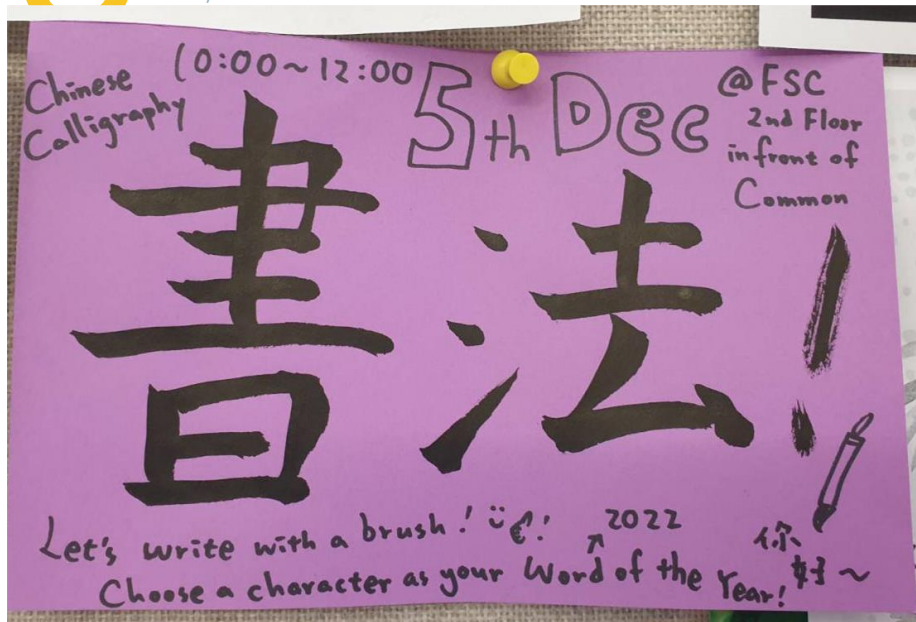 Chinese
Calligraphy
10:00~12:00
5th Dec
@FSC
2nd Floor
in front of
Common
書法!
Let's write with a brush!
2022
Choose a character as your Word of the Year!
你好~